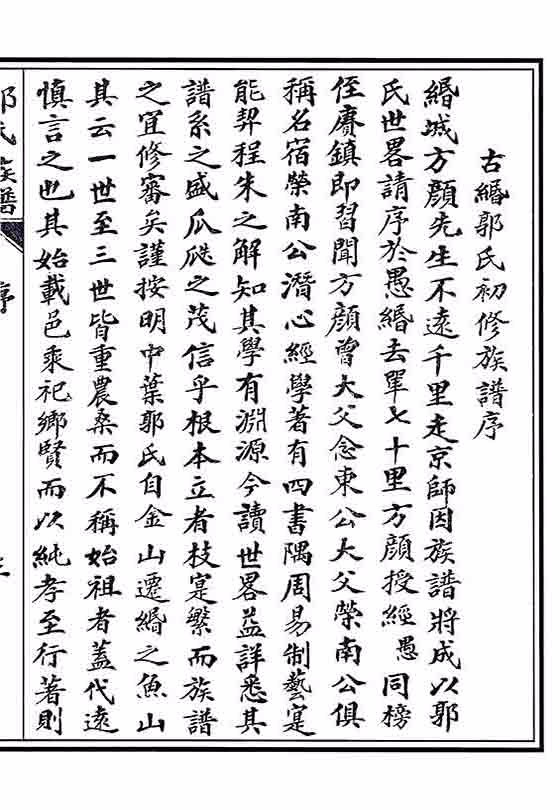 古緡郭氏初修族譜序
緡城方顏先生不遠千里走京師因族譜將成以郭
氏世畧請序於愚緡去單七十里方顏授經愚同榜
侄賡鎮即習聞方顏曾大父念東公大父榮南公俱
稱名宿榮南公潛心經學著有四書隅周易制藝寔
能契程朱之解知其學有淵源今讀世畧益詳悉其
譜系之盛瓜瓞之茂信乎根本立者枝寔繁而族譜
之宜修審矣謹按明中葉郭氏自金山遷緡之魚山
其云一世至三世皆重農桑而不稱始祖者蓋代遠
慎言之也其始載邑乘祀鄉賢而以純孝至行著則
郭氏族譜
序